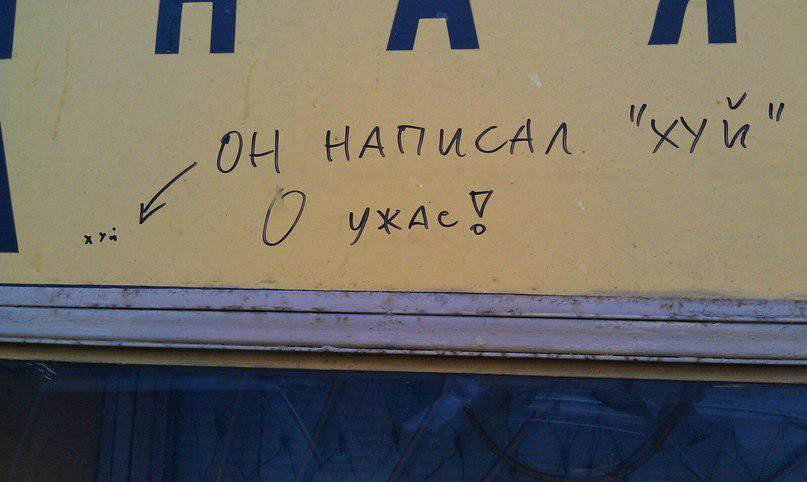 НАЯ
ОН НАПИСАЛ "ХУЙ"
О УЖАС!
хуй